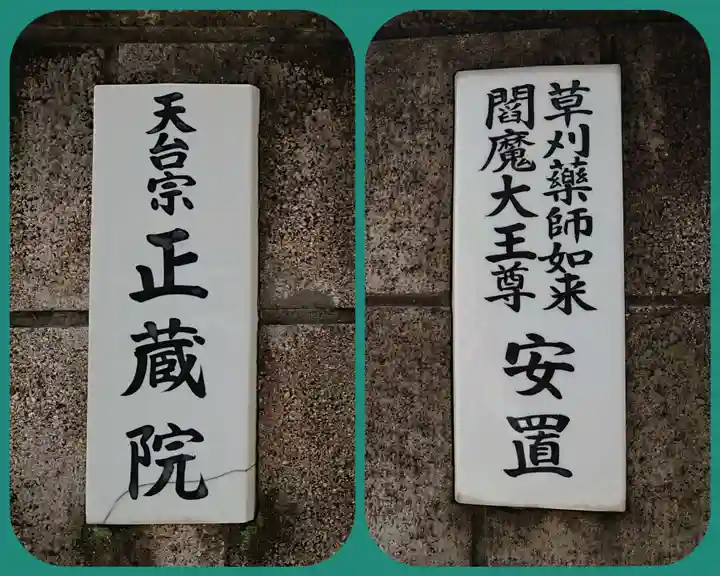 天台宗
正蔵院
草刈藥師如来
閻魔大王尊
安置